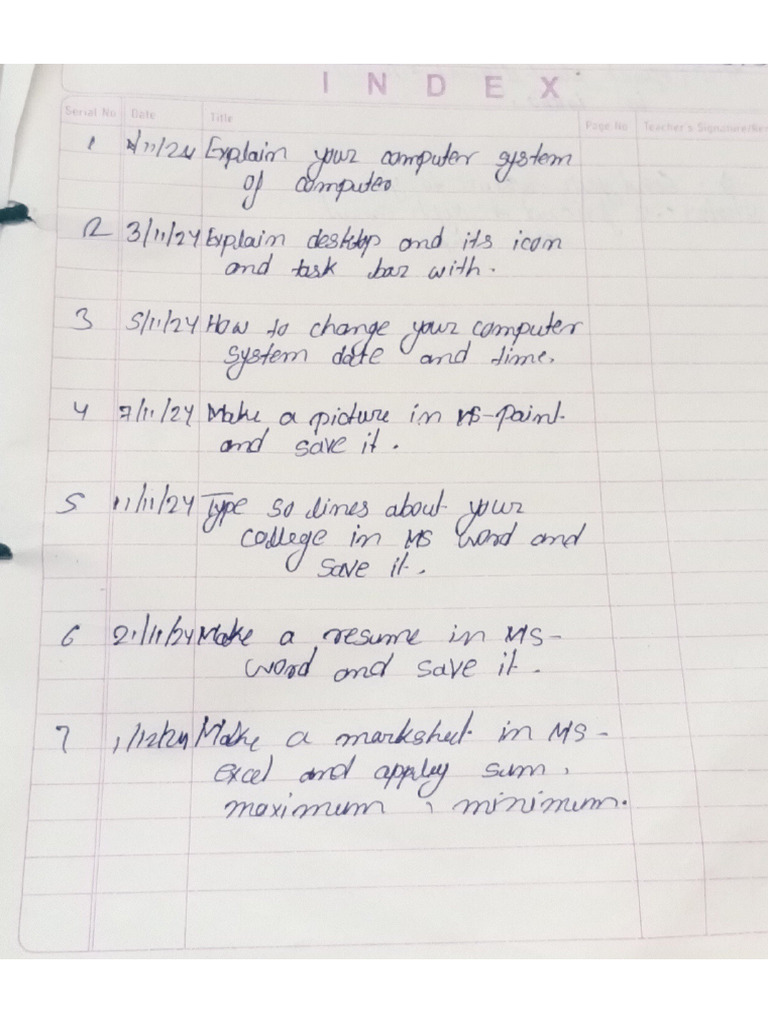 I N D E X
Serial No Date Title Page No Teacher's Signature/Re
1 /11/24 Explain your computer system
of computer
2 3/11/24 Explain desktop and its icon
and task bar with.
3 5/11/24 How to change your computer
system date and time.
4 7/11/24 Make a picture in MS-paint
and save it.
5 11/11/24 Type 50 lines about your
college in MS word and
save it.
6 21/11/24 Make a resume in MS-
word and save it.
7 1/12/24 Make a marksheet in MS-
excel and apply sum,
maximum, minimum.